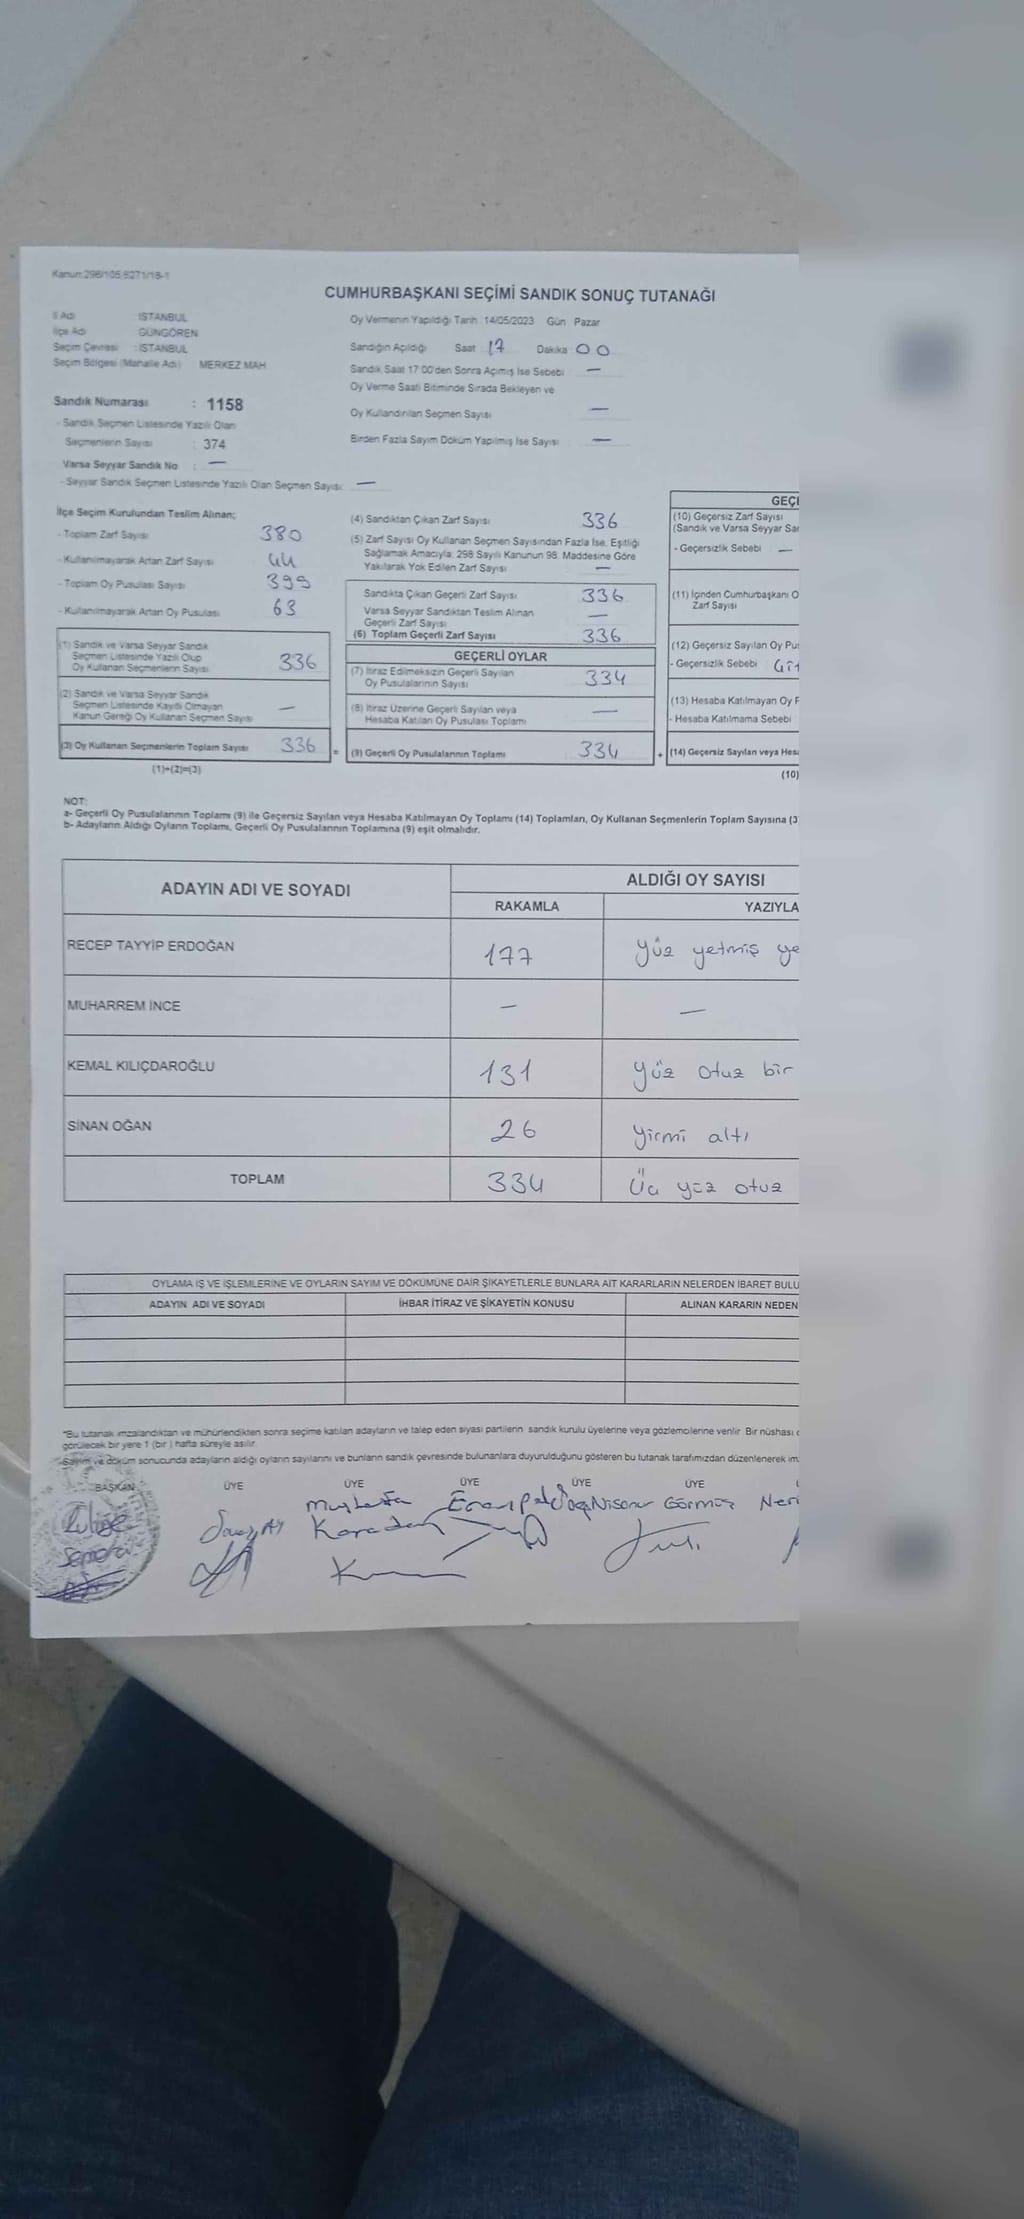 Kanun:298/105,6271/18-1
CUMHURBAŞKANI SEÇİMİ SANDIK SONUÇ TUTANAĞI
İl Adı : İSTANBUL
İlçe Adı : GÜNGÖREN
Seçim Çevresi : İSTANBUL
Seçim Bölgesi (Mahalle Adı) MERKEZ MAH
Oy Vermenin Yapıldığı Tarih 14/05/2023 Gün Pazar
Sandığın Açıldığı Saat 17 Dakika 00
Sandık Saat 17:00'den Sonra Açımış İse Sebebi —
Oy Verme Saati Bitiminde Sırada Bekleyen ve
Oy Kullandırılan Seçmen Sayısı —
Birden Fazla Sayım Döküm Yapılmış İse Sayısı —
Sandık Numarası : 1158
- Sandık Seçmen Listesinde Yazılı Olan
Seçmenlerin Sayısı : 374
Varsa Seyyar Sandık No : —
- Seyyar Sandık Seçmen Listesinde Yazılı Olan Seçmen Sayısı: —
İlçe Seçim Kurulundan Teslim Alınan;
- Toplam Zarf Sayısı 380
- Kullanılmayarak Artan Zarf Sayısı 44
- Toplam Oy Pusulası Sayısı 399
- Kullanılmayarak Artan Oy Pusulası 63
(1) Sandık ve Varsa Seyyar Sandık
Seçmen Listesinde Yazılı Olup
Oy Kullanan Seçmenlerin Sayısı 336
(2) Sandık ve Varsa Seyyar Sandık
Seçmen Listesinde Kayıtlı Olmayan
Kanun Gereği Oy Kullanan Seçmen Sayısı —
(3) Oy Kullanan Seçmenlerin Toplam Sayısı 336 =
(1)+(2)=(3)
(4) Sandıktan Çıkan Zarf Sayısı 336
(5) Zarf Sayısı Oy Kullanan Seçmen Sayısından Fazla İse, Eşitliği
Sağlamak Amacıyla, 298 Sayılı Kanunun 98. Maddesine Göre
Yakılarak Yok Edilen Zarf Sayısı —
Sandıkta Çıkan Geçerli Zarf Sayısı 336
Varsa Seyyar Sandıktan Teslim Alınan
Geçerli Zarf Sayısı —
(6) Toplam Geçerli Zarf Sayısı 336
GEÇERLİ OYLAR
(7) İtiraz Edilmeksizin Geçerli Sayılan
Oy Pusulalarının Sayısı 334
(8) İtiraz Üzerine Geçerli Sayılan veya
Hesaba Katılan Oy Pusulası Toplamı —
(9) Geçerli Oy Pusulalarının Toplamı 334 +
GEÇ
(10) Geçersiz Zarf Sayısı
(Sandık ve Varsa Seyyar Sa
- Geçersizlik Sebebi —
(11) İçinden Cumhurbaşkanı O
Zarf Sayısı
(12) Geçersiz Sayılan Oy Pu
- Geçersizlik Sebebi
(13) Hesaba Katılmayan Oy P
- Hesaba Katılmama Sebebi
(14) Geçersiz Sayılan veya Hes
(10)
NOT:
a- Geçerli Oy Pusulalarının Toplamı (9) ile Geçersiz Sayılan veya Hesaba Katılmayan Oy Toplamı (14) Toplamları, Oy Kullanan Seçmenlerin Toplam Sayısına (3
b- Adayların Aldığı Oyların Toplamı, Geçerli Oy Pusulalarının Toplamına (9) eşit olmalıdır.
ADAYIN ADI VE SOYADI ALDIĞI OY SAYISI
RAKAMLA YAZIYLA
RECEP TAYYİP ERDOĞAN 177 Yüz yetmiş ye
MUHARREM İNCE — —
KEMAL KILIÇDAROĞLU 131 Yüz otuz bir
SİNAN OĞAN 26 Yirmi altı
TOPLAM 334 Üç yüz otuz
OYLAMA İŞ VE İŞLEMLERİNE VE OYLARIN SAYIM VE DÖKÜMÜNE DAİR ŞİKAYETLERLE BUNLARA AİT KARARLARIN NELERDEN İBARET BULU
ADAYIN ADI VE SOYADI İHBAR İTİRAZ VE ŞİKAYETİN KONUSU ALINAN KARARIN NEDEN
*Bu tutanak imzalandıktan ve mühürlendikten sonra seçime katılan adayların ve talep eden siyasi partilerin sandık kurulu üyelerine veya gözlemcilerine verilir. Bir nüshası
görülecek bir yere 1 (bir) hafta süreyle asılır.
*Sayım ve döküm sonucunda adayların aldığı oyların sayılarını ve bunların sandık çevresinde bulunanlara duyurulduğunu gösteren bu tutanak tarafımızdan düzenlenerek im
BAŞKAN ÜYE ÜYE ÜYE ÜYE ÜYE
Mustafa Nisanur Görmüş Neri